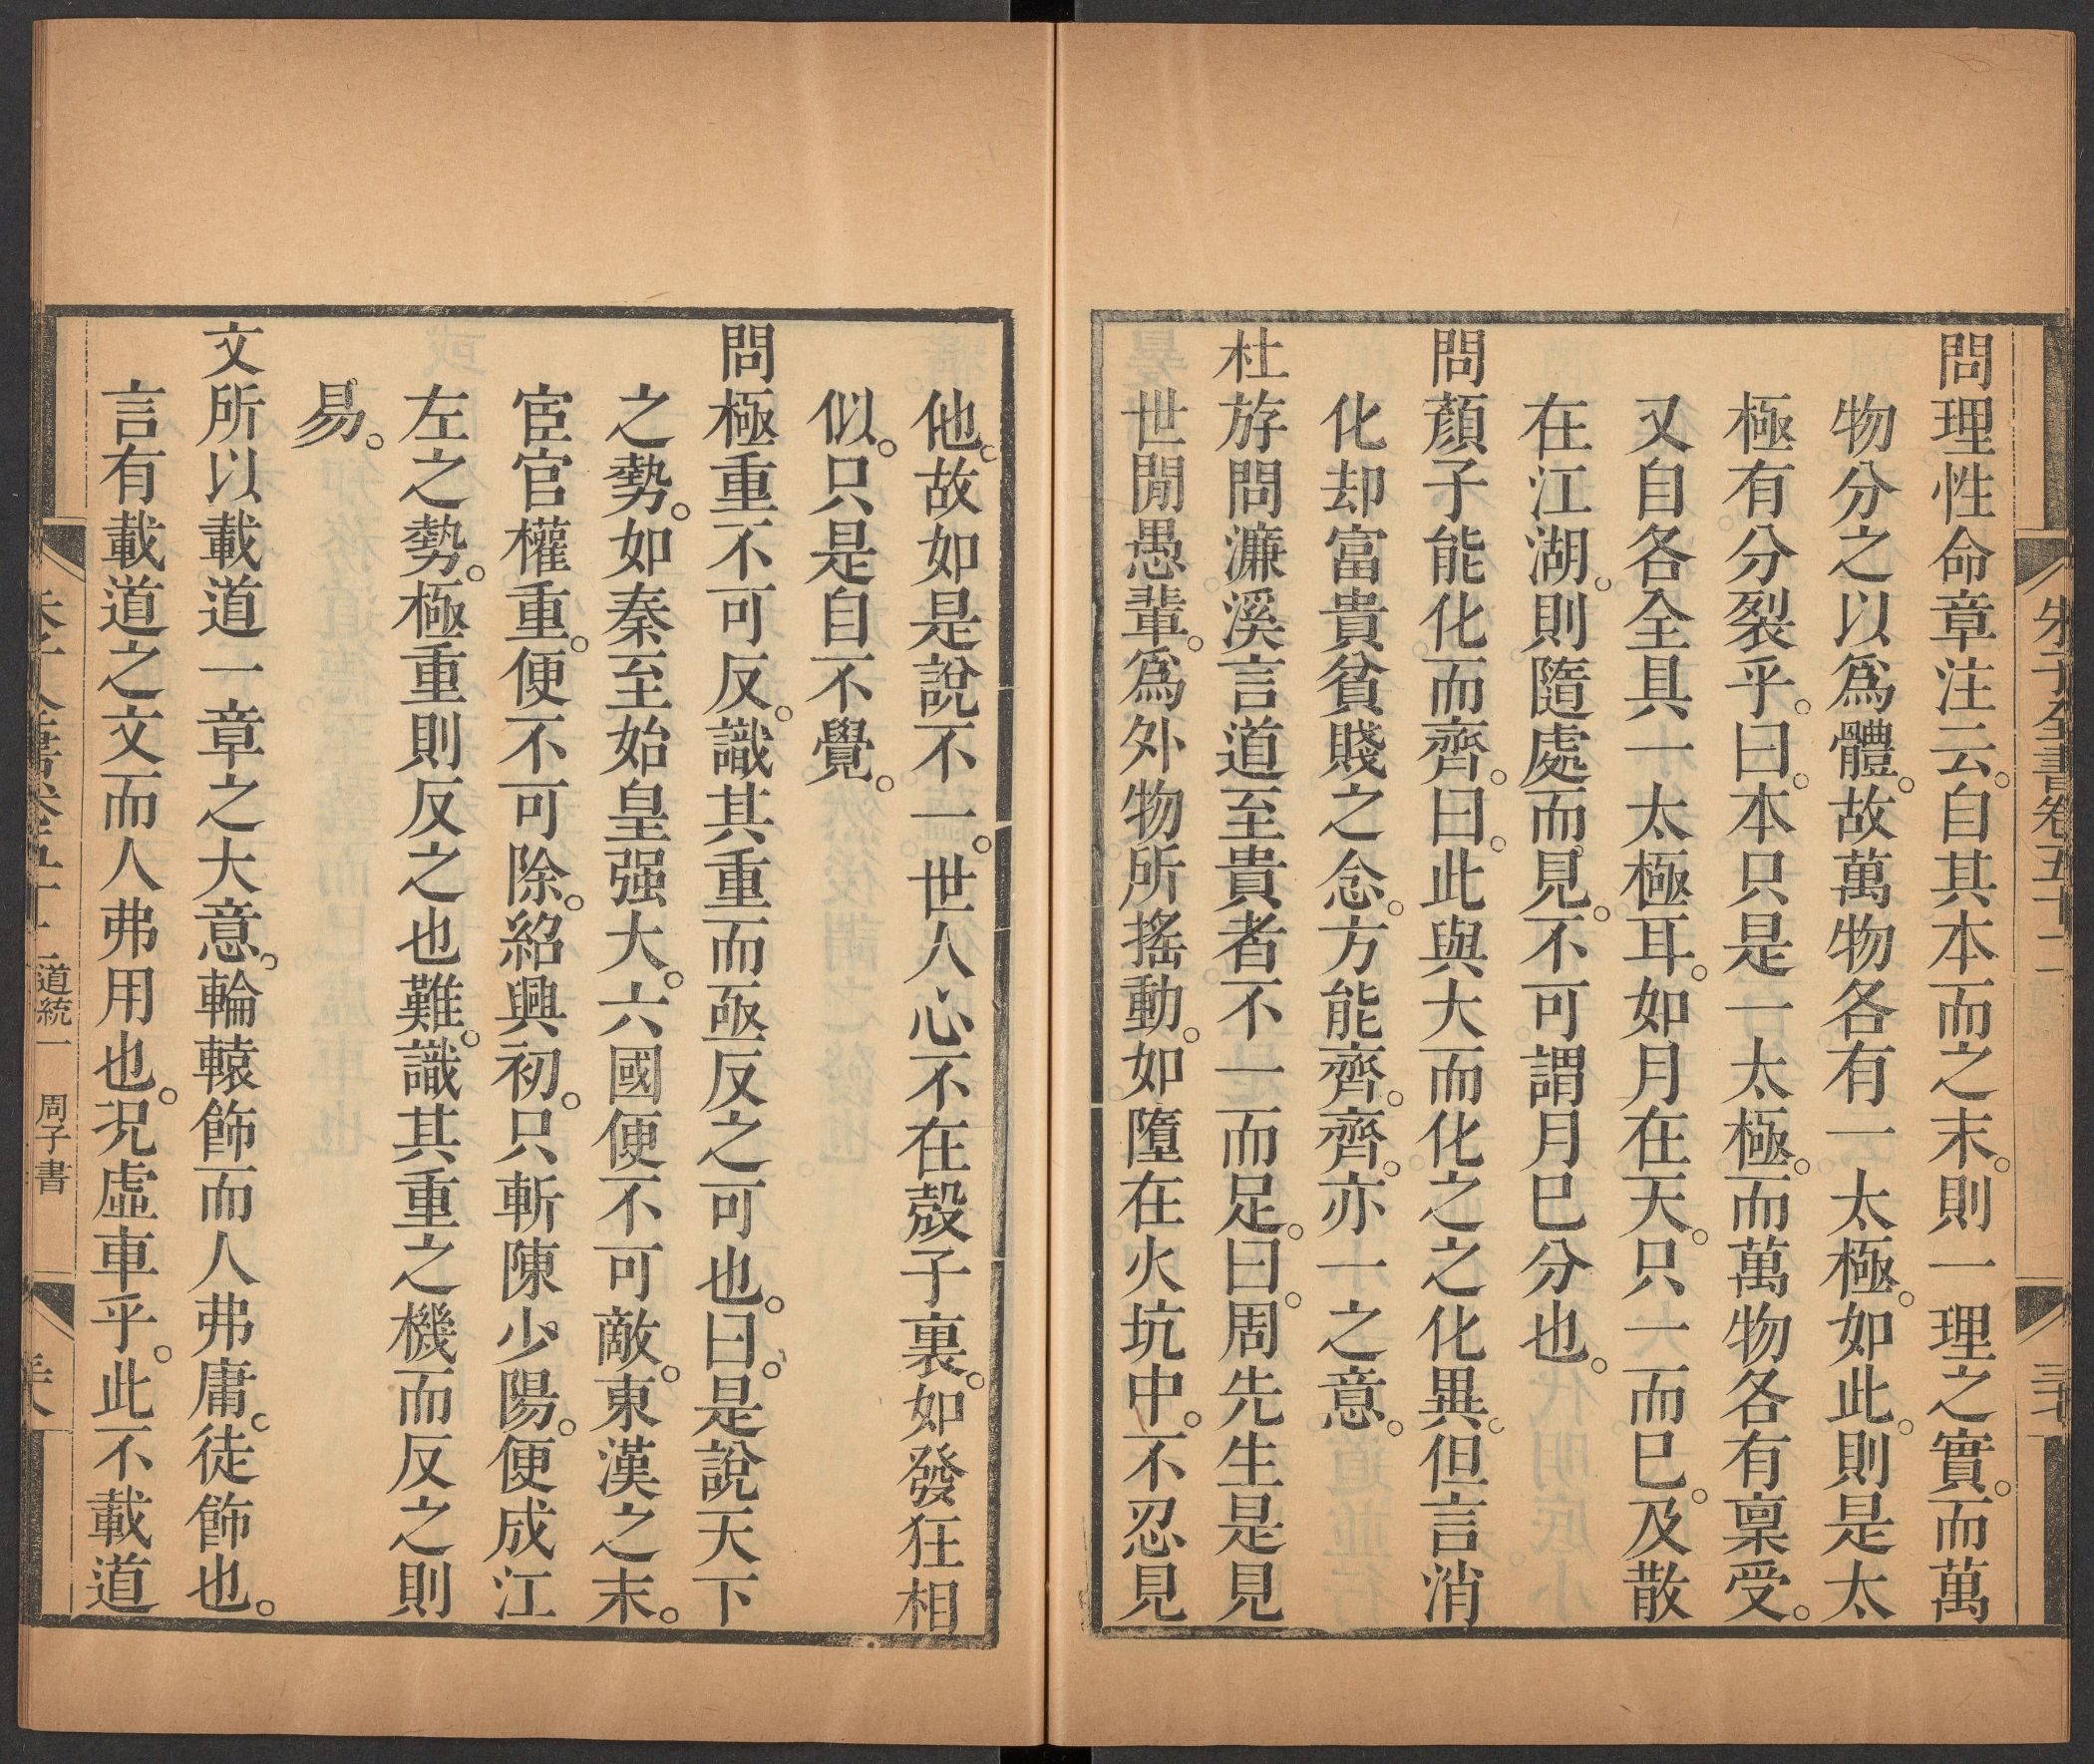 朱子全書卷五十二
問理性命章注云。自其本而之末。則一理之實。而萬
物分之以爲體。故萬物各有一太極。如此。則是太
極有分裂乎。曰。本只是一太極。而萬物各有稟受。
又自各全具一太極耳。如月在天。只一而已。及散
在江湖。則隨處而見。不可謂月已分也。
問顏子能化而齊。曰。此與大而化之之化異。但言消
化却富貴貧賤之念。方能齊。齊。亦一之意。
杜斿問濂溪言道至貴者不一而足。曰。周先生是見
世閒愚輩。爲外物所搖動。如墮在火坑中。不忍見
他。故如是說不一。世人心不在殼子裏。如發狂相
似。只是自不覺。
問極重不可反。識其重而亟反之可也。曰。是說天下
之勢。如秦至始皇强大。六國便不可敵。東漢之末。
宦官權重。便不可除。紹興初。只斬陳少陽。便成江
左之勢。極重則反之也難。識其重之機而反之則
易。
文所以載道一章之大意。輪轅飾而人弗庸。徒飾也。
言有載道之文而人弗用也。况虛車乎。此不載道
道統一 周子書